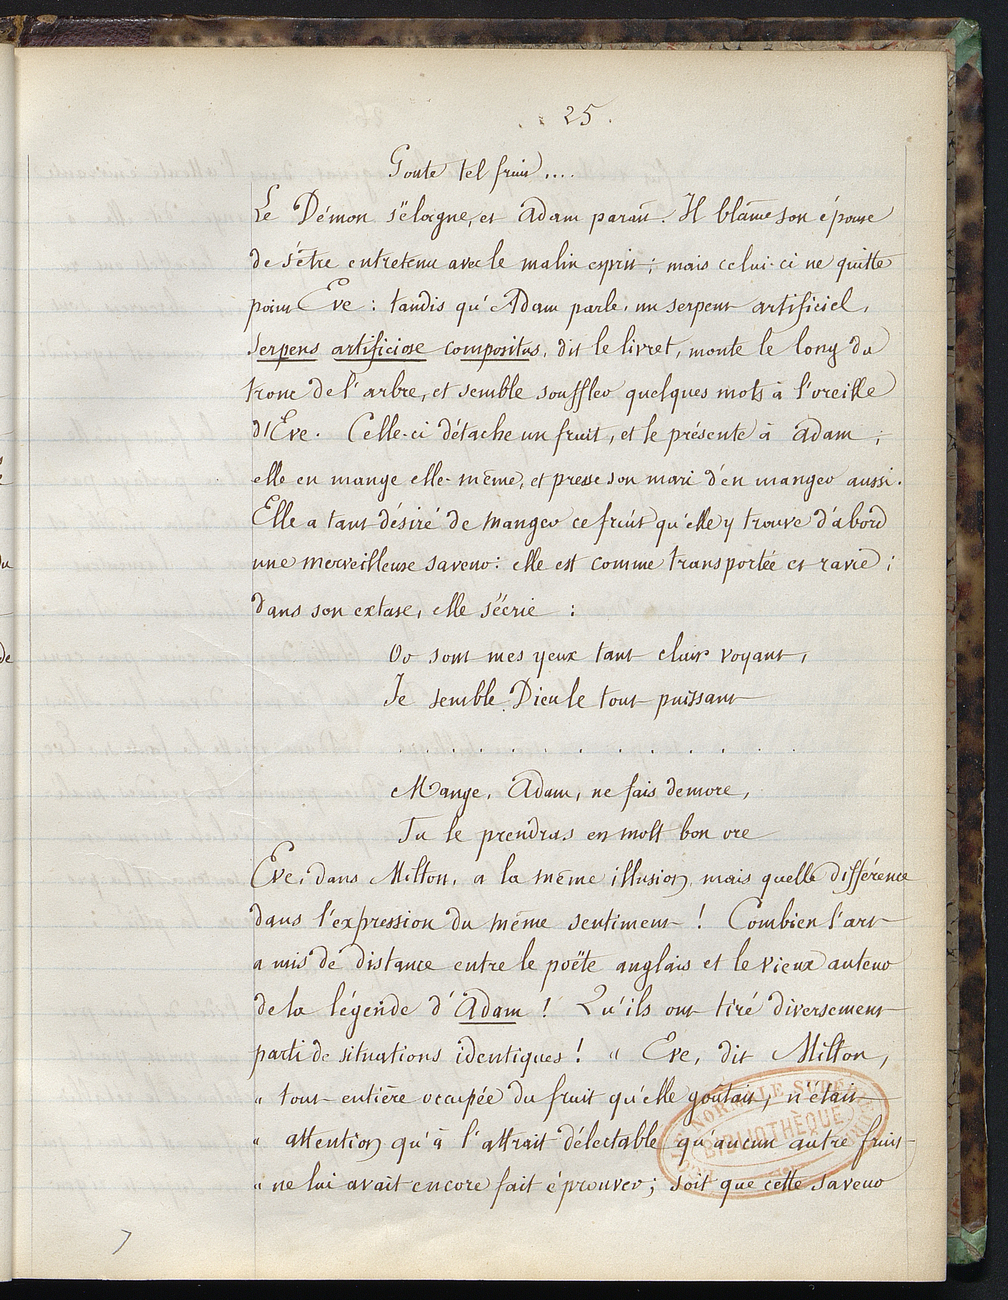 25.
Goute tel fruit....
Le Démon s'éloigne, et Adam paraît. Il blâme son épouse
de s'être entretenu avec le malin esprit; mais celui-ci ne quitte
point Eve : tandis qu'Adam parle, un serpent artificiel,
serpens artificiose compositus, dit le livret, monte le long du
tronc de l'arbre, et semble souffler quelques mots à l'oreille
d'Eve. Celle-ci détache un fruit, et le présente à Adam ;
elle en mange elle-même, et presse son mari d'en manger aussi.
Elle a tant désiré de manger ce fruit qu'elle y trouve d'abord
une merveilleuse saveur: elle est comme transportée et ravie ;
dans son extase, elle s'écrie :
Or sont mes yeux tant clair voyant,
Je semble Dieu le tout puissant
. . . . . . . . . . . .
Mange, Adam, ne fais demore,
Tu le prendras en molt bon ore
Eve, dans Milton, a la même illusion, mais quelle différence
dans l'expression du même sentiment ! Combien l'art
a mis de distance entre le poëte anglais et le vieux auteur
de la légende d'Adam ! Qu'ils ont tiré diversement
parti de situations identiques ! " Eve, dit Milton,
" tout entière occupée du fruit qu'elle goûtait, n'était
" attention qu'à l'attrait délectable qu'aucun autre fruit
" ne lui avait encore fait éprouver; soit que cette saveur
NORMALE SUPÉ
BIBLIOTHÈQUE